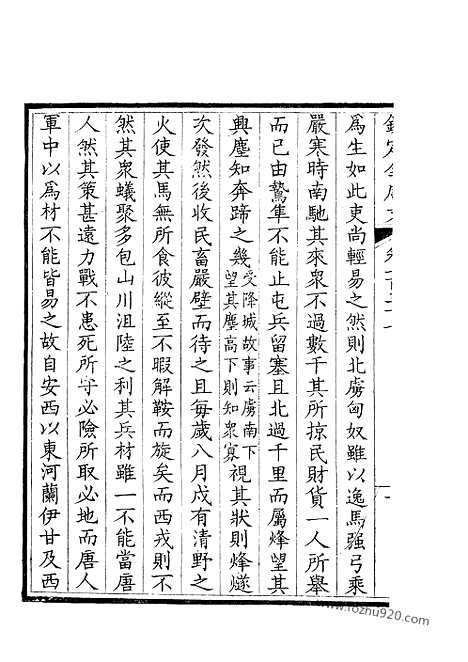 為生如此吏尚輕易之然則北虜匈奴雖以逸馬強弓乘
嚴寒時南馳其來衆不過數千其所掠民財貨一人所舉
而已由鷙隼不能止屯兵留塞且北過千里而屬烽望其
興塵知奔蹄之幾受降城故事云虜南下望其塵高下則知衆寡視其狀則烽燧
次發然後收民畜嚴壁而待之且每歲八月戍有清野之
火使其馬無所食彼縱至不暇解鞍而旋矣而西戎則不
然其衆蟻聚多包山川沮陸之利其兵材雖一不能當唐
人然其策甚遠力戰不患死所守必險所取必地而唐人
軍中以為材不能皆易之故自安西以東河蘭伊甘及西
www.fozhu920.com